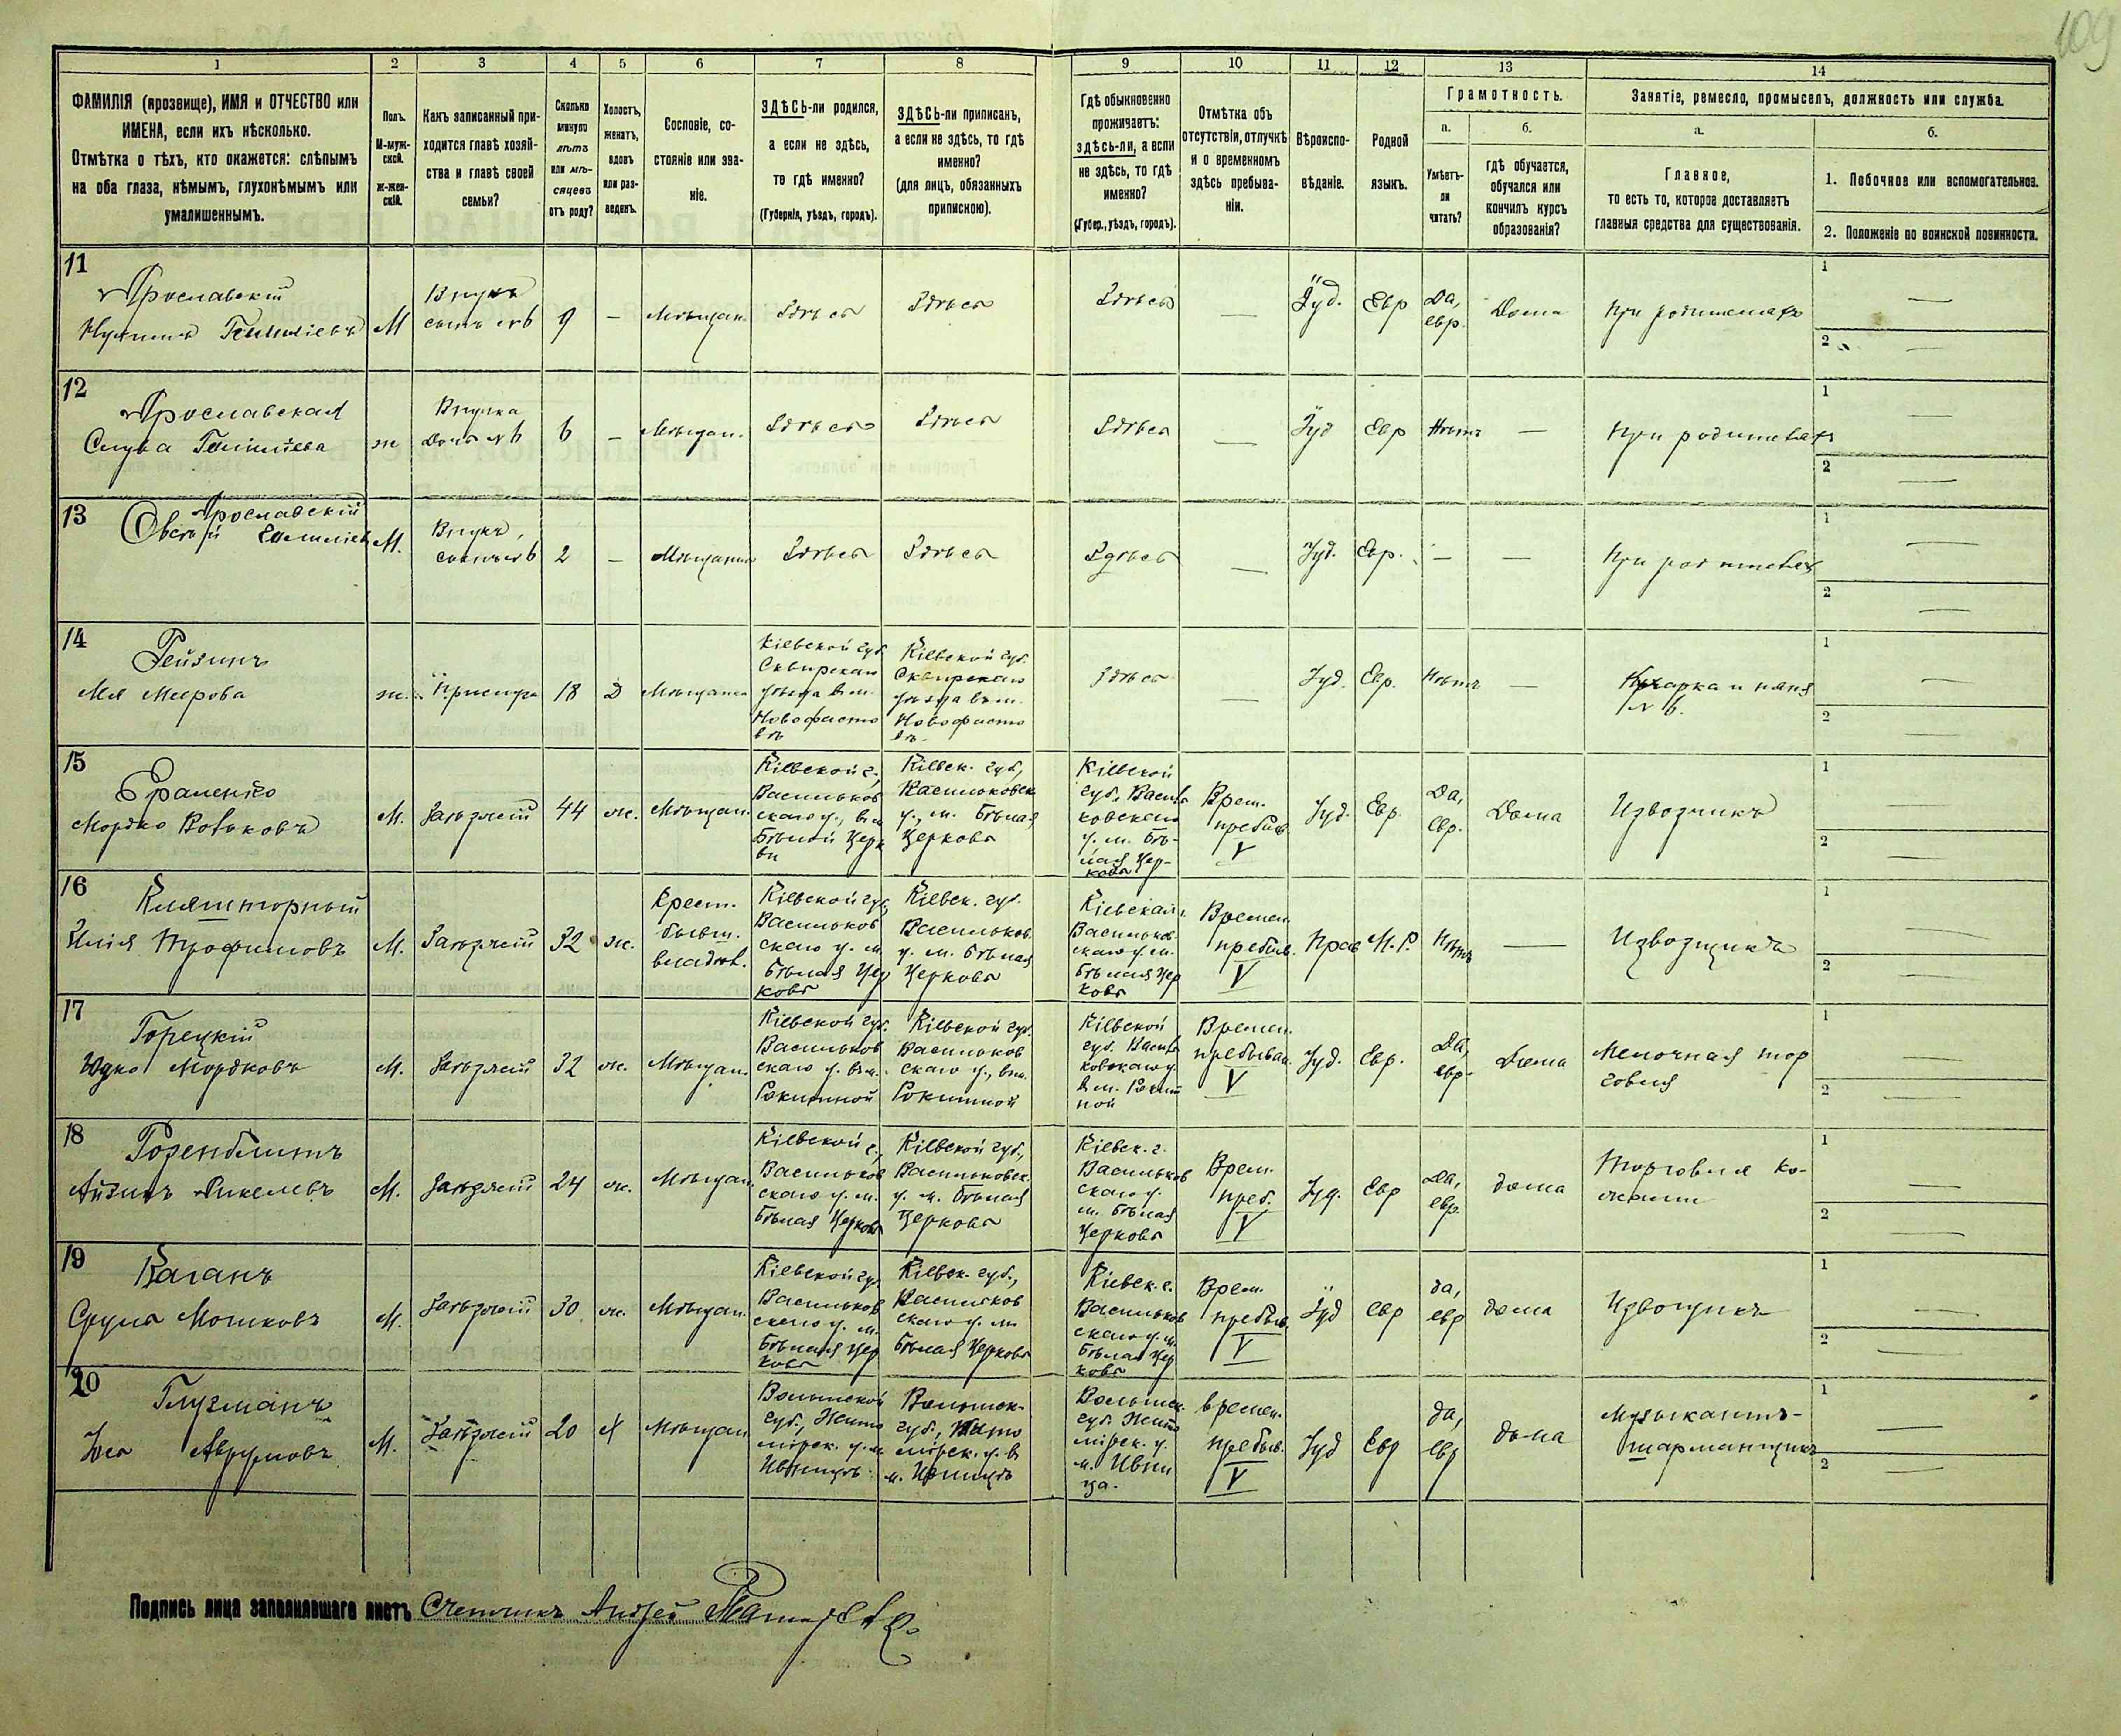 109
1
2
3
4
5
6
7
8
9
10
11
12
13
14
ФАМИЛІЯ (прозвище), ИМЯ и ОТЧЕСТВО или
ИМЕНА, если ихъ нѣсколько.
Отмѣтка о тѣхъ, кто окажется: слѣпымъ
на оба глаза, нѣмымъ, глухонѣмымъ или
умалишеннымъ.
Полъ.
М-муж-
ской.
ж-жен-
скій.
Какъ записанный при-
ходится главѣ хозяй-
ства и главѣ своей
семьи?
Сколько
минуло
лѣтъ
или мѣ-
сяцевъ
отъ роду?
Холостъ,
женатъ,
вдовъ
или раз-
веденъ.
Сословіе, со-
стояніе или зва-
ніе.
ЗДѢСЬ-ли родился,
а если не здѣсь,
то гдѣ именно?
(Губернія, уѣздъ, городъ).
ЗДѢСЬ-ли приписанъ,
а если не здѣсь, то гдѣ
именно?
(для лицъ, обязанныхъ
припискою).
Гдѣ обыкновенно
проживаетъ:
здѣсь-ли, а если
не здѣсь, то гдѣ
именно?
(Губер., уѣздъ, городъ).
Отмѣтка объ
отсутствіи, отлучкѣ
и о временномъ
здѣсь пребыва-
ніи.
Вѣроиспо-
вѣданіе.
Родной
языкъ.
Грамотность.
а.
Умѣетъ-
ли
читать?
б.
гдѣ обучается,
обучался или
кончилъ курсъ
образованія?
Занятіе, ремесло, промыселъ, должность или служба.
а.
Главное,
то есть то, которое доставляетъ
главныя средства для существованія.
б.
1. Побочное или вспомогательное.
2. Положеніе по воинской повинности.
11
Ярославскій
М
Внукъ
сынъ №6
9
—
Мѣщан.
Здѣсь
Здѣсь
Здѣсь
—
Іуд.
Евр
Да,
евр.
Дома
При родителяхъ
1 —
2 —
12
Ярославская
ж
Внучка
Дочь №6
6
—
Мѣщан.
Здѣсь
Здѣсь
Здѣсь
—
Іуд
Евр
Нѣтъ
—
При родителях
1 —
2 —
13
Ярославскій
М.
Внукъ,
сынъ №6
2
—
Здѣсь
Здѣсь
Здѣсь
—
Іуд.
Евр.
—
—
При родителях
1 —
2 —
14
Рейзинъ
Мееровa
ж.
Прислуга
18
Д
Мѣщанка
Кіевской губ.
Сквирскаго
уѣзда в м.
Новофасто
вѣ
Кіевской губ.
Сквирскаго
уѣзда в м.
Новофасто
вѣ.
Здѣсь
—
Іуд.
Евр.
Нѣтъ
—
Кухарка и няня
№ 6.
1 —
2 —
15
Мордко
М.
Заѣзжій
44
ж.
Мѣщан.
Кіевской г.,
Васильков
скаго у., в м
Бѣлой Церк
ви
Кіевск. губ,
Васильковск
у., м. Бѣлая
Церковь
Кіевской
губ. Василь
ковскаго
у. м. Бѣ-
лая Цер-
ковь
Врем.
пребыв.
V
Іуд.
Евр.
Да,
Евр.
Дома
Извозчикъ
1 —
2 —
16
Илія Трофимовъ
М.
Заѣзжій
32
ж.
Крест.
бывш.
владѣл.
Кіевской губ,
Васильков
скаго у. м.
Бѣлая Цер
ковь
Кіевск. губ.
Васильков.
у. м. Бѣлая
Церковь
Кіевская г.
Васильков-
скаго у. м.
Бѣлая Цер
ковь
Времен.
пребыв.
V
Прав
М. Р.
Нѣтъ
—
Извозщикъ
1 —
2 —
17
Горецкій
Юдко Мордковъ
М.
Заѣзжій
32
ж.
Мѣщан.
Кіевской губ.
Васильков
скаго у. в м.
Рокитной
Кіевской губ.
Васильков
скаго у., в м.
Рокитной
Кіевской
губ. Василь
ковскаго у.
в м. Рокит
ной
Времен.
пребыван.
V
Іуд.
Евр.
Да,
евр.
Дома
Мелочная тор
говля
1 —
2 —
18
Розенблитъ
Айзикъ
М.
Заѣзжій
24
ж.
Мѣщан.
Кіевской г.,
Васильков
скаго у. м.
Бѣлая Церковь
Кіевской губ,
Васильковск.
у. м. Бѣлая
Церковь
Кіевск. г.
Васильков
скаго у.
м. Бѣлая
Церковь
Врем.
преб.
V
Іуд.
Евр
Да,
евр.
дома
Торговля ко-
жами
1 —
2 —
19
Каганъ
Срулъ Мошковъ
М.
Заѣзжій
30
ж.
Мѣщан.
Кіевской губ
Васильков
скаго у. м.
Бѣлая Цер
ковь
Кіевск. губ.,
Васильков
скаго у. м
Бѣлая Церковь
Кіевск. г.
Васильков
скаго у. м.
Бѣлая Цер
ковь
Врем.
пребыв.
V
Іуд
евр
да,
евр
дома
Извозчикъ
1 —
2 —
20
Глузманъ
Авруmовъ
М.
Заѣзжій
20
Х
Мѣщан
Волынской
губ., Жито
мірск. у. м
Ивницѣ
Волынск-
губ., Жито
мірск. у. в
м. Ивницѣ
Волынск.
губ. Жито
мірск. у.
м. Ивни
ца.
времен.
пребыв.
V
Іуд
Евр
да,
евр
дома
Музыкантъ-
шарманщикъ
1 —
2 —
Подпись лица заполнявшаго листъ Счетчикъ Андрей